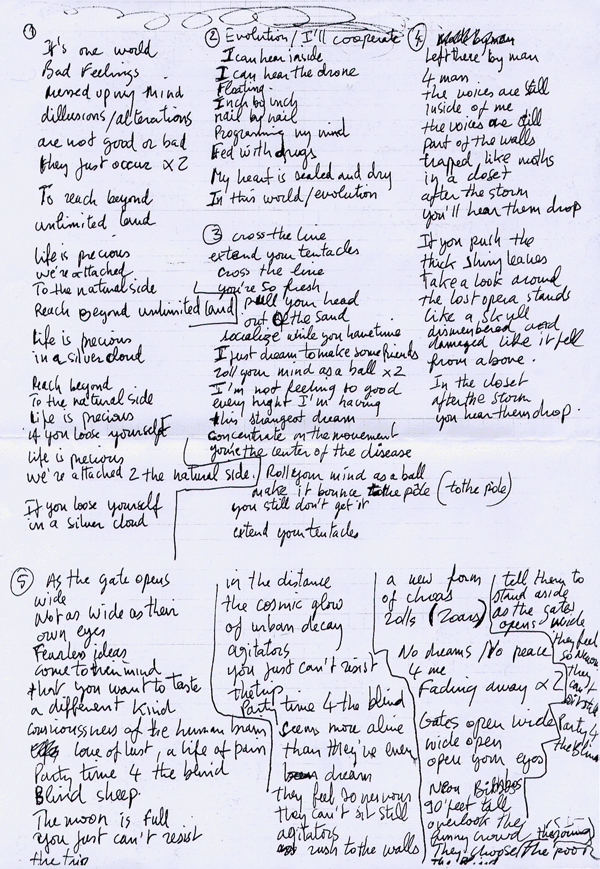 1
It's one world
Bad Feelings
messed up my mind
dillusions/alterations
are not good or bad
they just occur x2
To reach beyond
unlimited land
Life is precious
we're attached
To the natural side
Reach Beyond unlimited land
Life is precious
in a silver cloud
Reach beyond
To the natural side
Life is precious
if you loose yourself
life is precious
we're attached 2 the natural side.
If you loose yourself
in a silver cloud
2 Evolution/I'll cooperate
I can hear inside
I can hear the drone
Floating.
Inch by inch
nail by nail
Programming my mind
Fed with drugs
My heart is sealed and dry
In this world/evolution
3 cross the line
extend your tentacles
cross the line
you're so fresh
pull your head
out of the sand
socialize while you have time
I just dream to make some friends
roll your mind as a ball x2
I'm not feeling to good
every night I'm having
this strangest dream
concentrate on the movement
you're the center of the disease
Roll your mind as a ball
make it bounce to the pole (to the pole)
you still don't get it
extend your tentacles
4
Left there by man
4 man
the voices are still
inside of me
the voices are still
part of the walls
traped like moths
in a closet
after the storm
you'll hear them drop
If you push the
thick shiny leaves
Take a look around
the lost opera stands
like a skull
dismembered and
damaged like it fell
from above.
In the closet
after the storm
you hear them drop.
5 As the gate opens
wide
Not as wide as their
own eyes
Fearless ideas
come to their mind
that you want to taste
a different kind
consciousness of the human brain
love of lust, a life of pain
Party time 4 the blind
Blind sheep
The moon is full
you just can't resist
the trip
in the distance
the cosmic glow
of urban decay
agitators
you just can't resist
the trip
Party time 4 the blind
seems more alive
than they've ever
dream
they feel so nervous
they can't sit still
agitators
rush to the walls
a new form
of cheas
rolls (roars)
No dreams / No peace
4 me
Fading away x2
Gates open wide
wide open
open your eyes
Neon
90 feet tall
overlook the
funny crowd
They choose the poor
tell them to
stand aside
as the gates
opens wide
they feel
so nervous
they
can't
sit still
Party 4
the blind